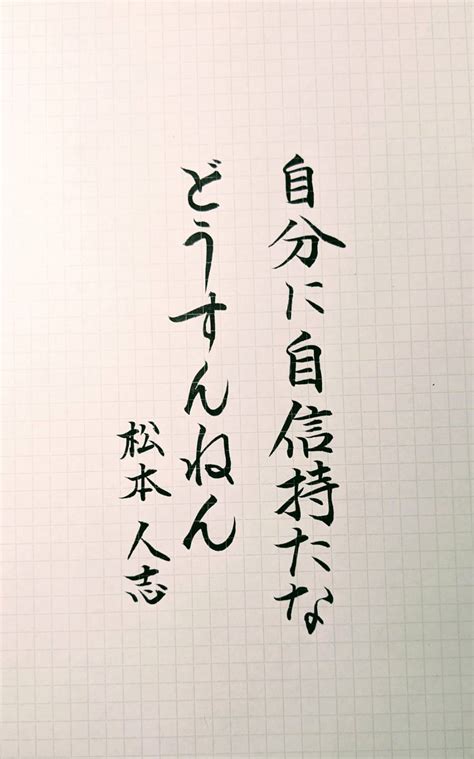 自分に自信持たな
どうすんねん
松本人志